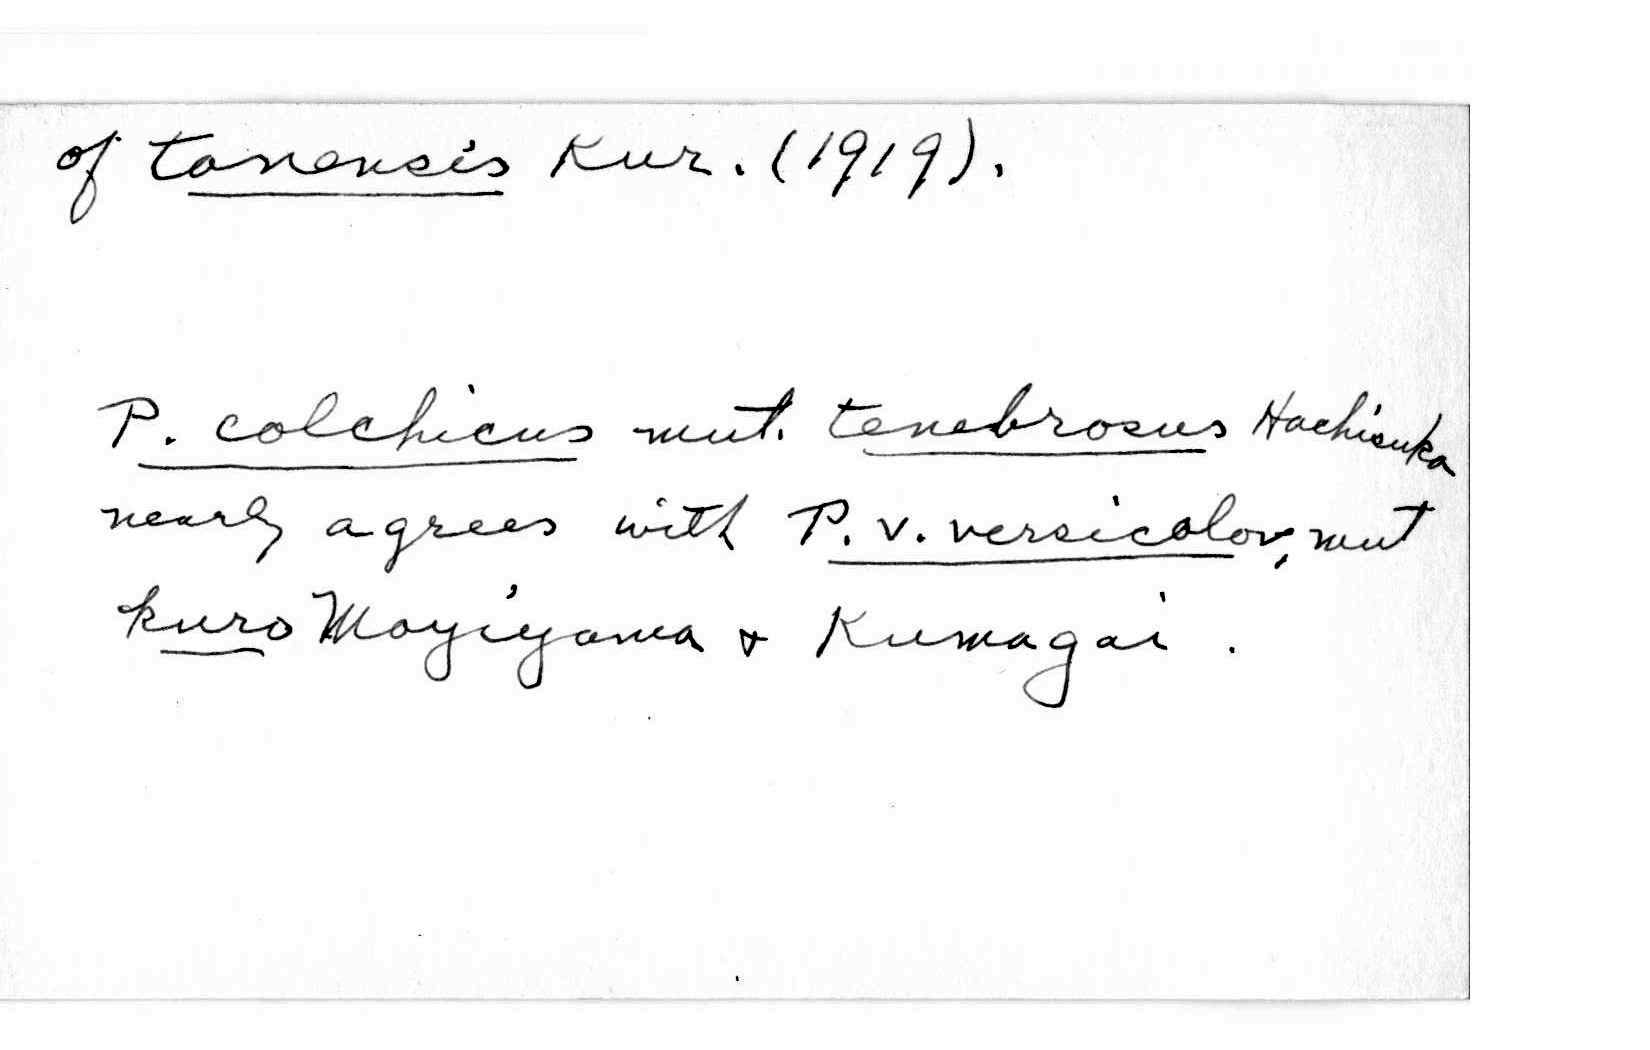 of tanensis Kur. (1919).
P. colchicus mut. tenebrosus Hachisuka
nearly agrees with P. v. versicolor, mut
kuro Moyiyama & Kumagai.